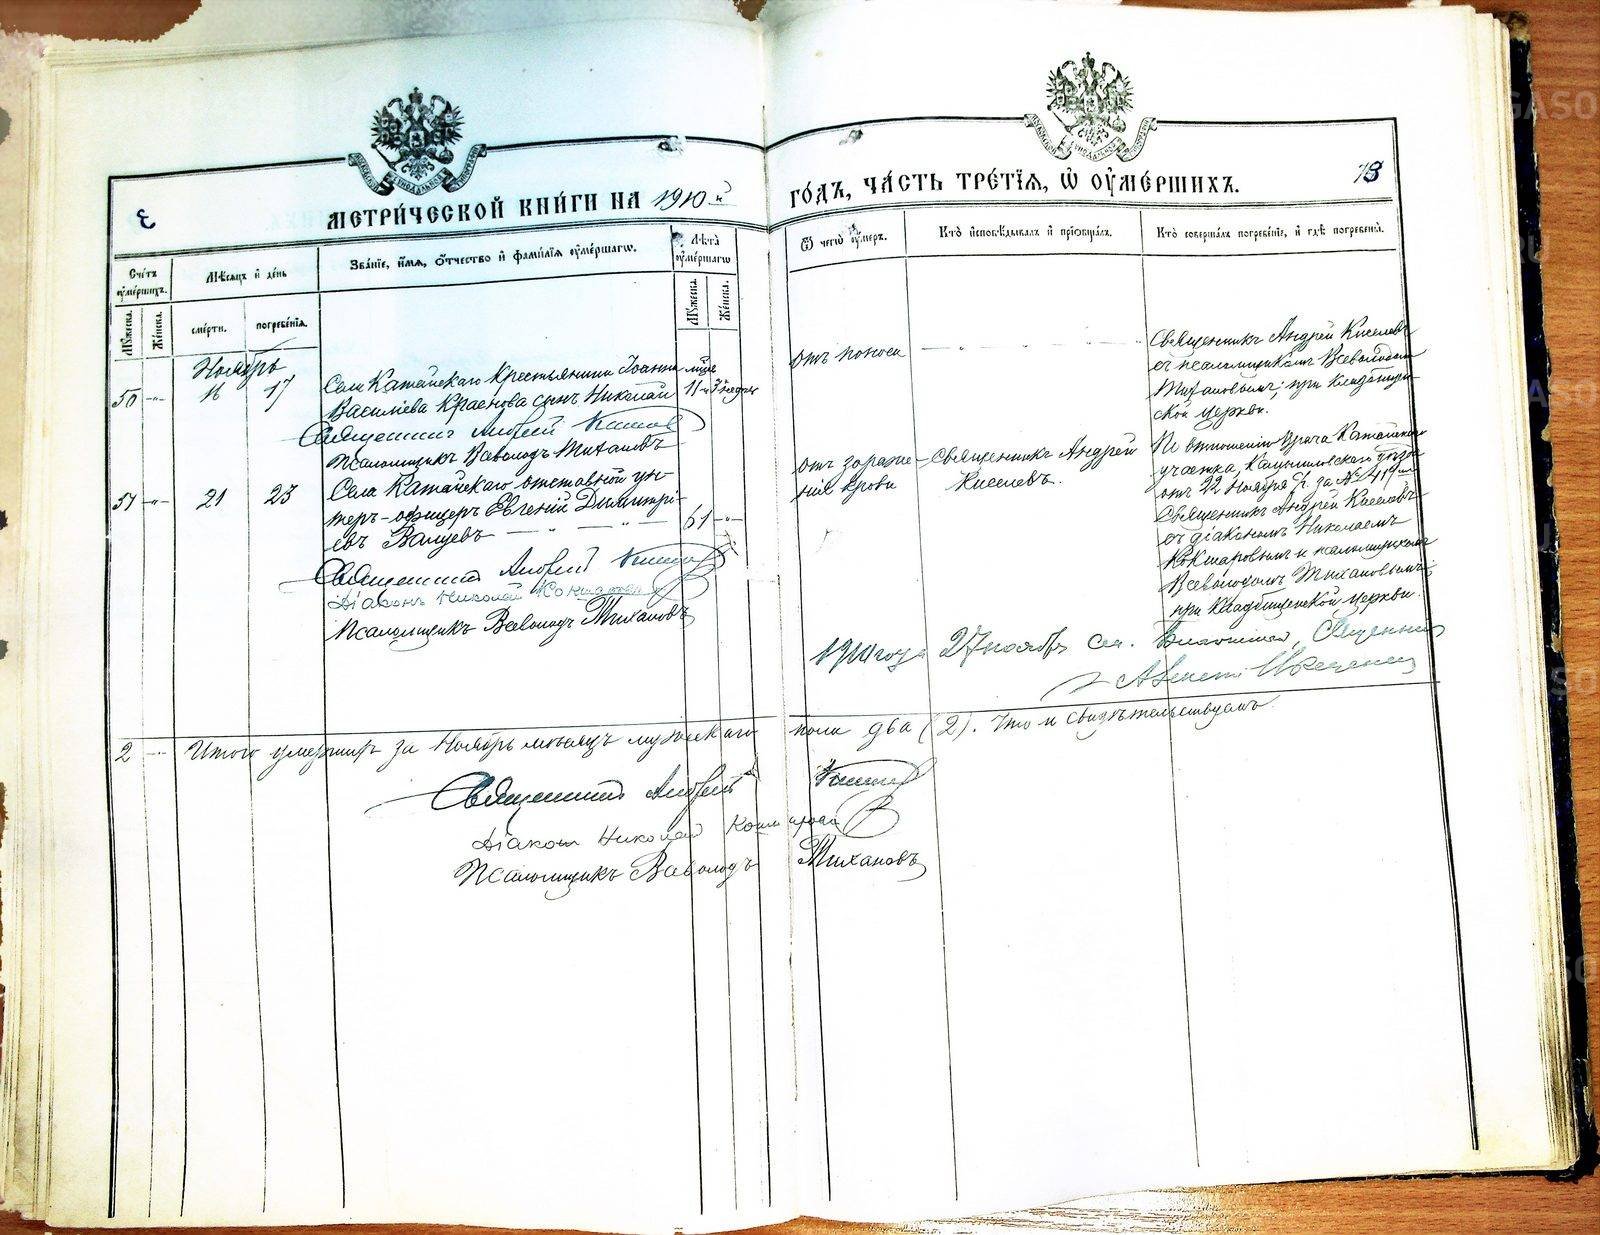 МЕТРИЧЕСКОЙ КНИГИ НА 1910 й
ГОДЪ, ЧАСТЬ ТРЕТІЯ, Ѡ ОУМЕРШИХЪ.
13
Счетъ оумершихъ.
Мѣсяцъ и день
Званіе, имя, отчество и фамилія оумершагѡ.
Лѣта оумершагѡ
Ѿ чегѡ оумеръ.
Кто исповѣдывалъ и пріобщалъ.
Кто совершалъ погребеніе, и гдѣ погребены.
Мужеска.
Женска.
смерти.
погребенія.
Мужеска.
Женска.
Ноябрь
50 16 17
Села Катайскаго крестьянина Іоанна
Василіева Краснова сынъ Николай
отъ поноса
Священникъ Андрей Киселевъ
съ псаломщикомъ Всеволодомъ
Тихановымъ; при кладбищен-
ской церкви.
Священникъ Андрей Киселевъ
Псаломщикъ Всеволодъ Тихановъ
51 21 23
Села Катайскаго отставной ун-
теръ-офицеръ Евгеній Димитрі-
евъ
61
отъ зараже-
нія крови
Священникъ Андрей
Киселевъ.
По отношенію Врача Катайскаго
участка, Камышловскаго уѣзда
отъ 22 Ноября с. г. за №
Священникъ Андрей Киселевъ
съ діакономъ Николаемъ
Кокшаровымъ и псаломщикомъ
Всеволодомъ Тихановымъ
при кладбищенской церкви.
Священникъ Андрей Киселевъ
Діаконъ Николай Кокшаровъ
Псаломщикъ Всеволодъ Тихановъ
1910 года 27 ноября Священникъ
2 Итого умершихъ за Ноябрь мѣсяцъ мужескаго пола два (2). Что и свидѣтельствуемъ
Священникъ Андрей Киселевъ
Діаконъ Николай Кокшаровъ
Псаломщикъ Всеволодъ Тихановъ